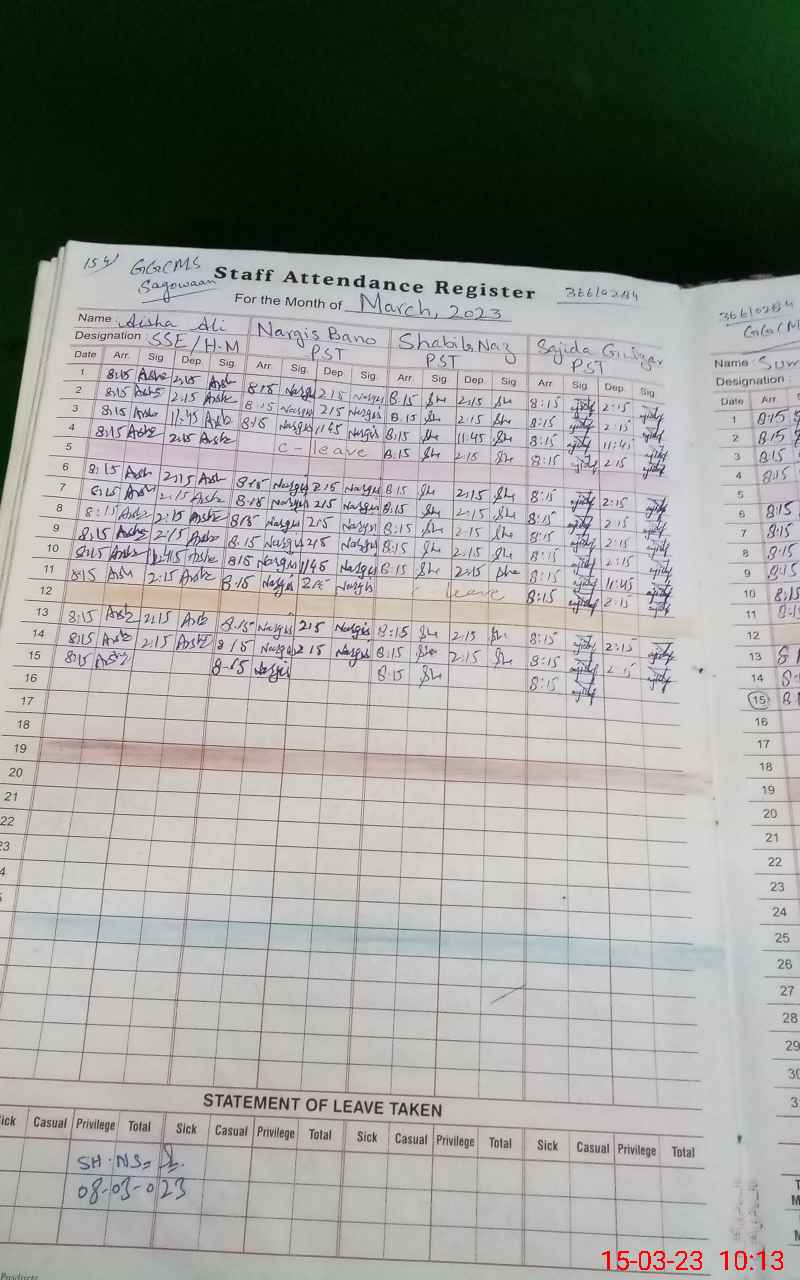 154 GGCMS
Sagowaan
Staff Attendance Register 36610284
For the Month of March, 2023
Name Aisha Ali Nargis Bano Shabila Naz Sajida
Designation SSE/H.M PST PST PST
Date Arr. Sig Dep. Sig. Arr Sig. Dep. Sig. Arr. Sig Dep. Sig. Arr. Sig Dep. Sig.
1 8:15 2:15 8:15 Nargis 2:15 Nargis 8:15 She 2:15 She 8:15 2:15
2 8:15 2:15 8:15 Nargis 2:15 Nargis 8:15 She 2:15 She 8:15 2:15
3 8:15 11:45 8:15 Nargis 11:45 Nargis 8:15 She 11:45 She 8:15 11:45
4 8:15 2:15 C-leave 8:15 She 2:15 She 8:15 2:15
5
6 8:15 2:15 8:15 Nargis 2:15 Nargis 8:15 She 2:15 She 8:15 2:15
7 8:15 2:15 8:15 Nargis 2:15 Nargis 8:15 She 2:15 She 8:15 2:15
8 8:15 2:15 8:15 Nargis 2:15 Nargis 8:15 She 2:15 She 8:15 2:15
9 8:15 2:15 8:15 Nargis 2:15 Nargis 8:15 She 2:15 She 8:15 2:15
10 8:15 11:45 8:15 Nargis 11:45 Nargis 8:15 She 2:15 She 8:15 11:45
11 8:15 2:15 8:15 Nargis 2:15 Nargis C leave 8:15 2:15
12
13 8:15 2:15 8:15 Nargis 2:15 Nargis 8:15 She 2:15 She 8:15 2:15
14 8:15 2:15 8:15 Nargis 2:15 Nargis 8:15 She 2:15 She 8:15 2:15
15 8:15 8:15 Nargis 8:15 She 8:15
16
17
18
19
20
21
22
23
4
STATEMENT OF LEAVE TAKEN
ick Casual Privilege Total Sick Casual Privilege Total Sick Casual Privilege Total Sick Casual Privilege Total
SH.NS=
08-03-023
Products
36610284
GGCM
Name
Designation
Date Arr
1 8:15
2 8:15
3 8:15
4 8:15
5
6 8:15
7 8:15
8 8:15
9 8:15
10 8:15
11
12
13
14
15
16
17
18
19
20
21
22
23
24
25
26
27
28
29
30
3
15-03-23 10:13